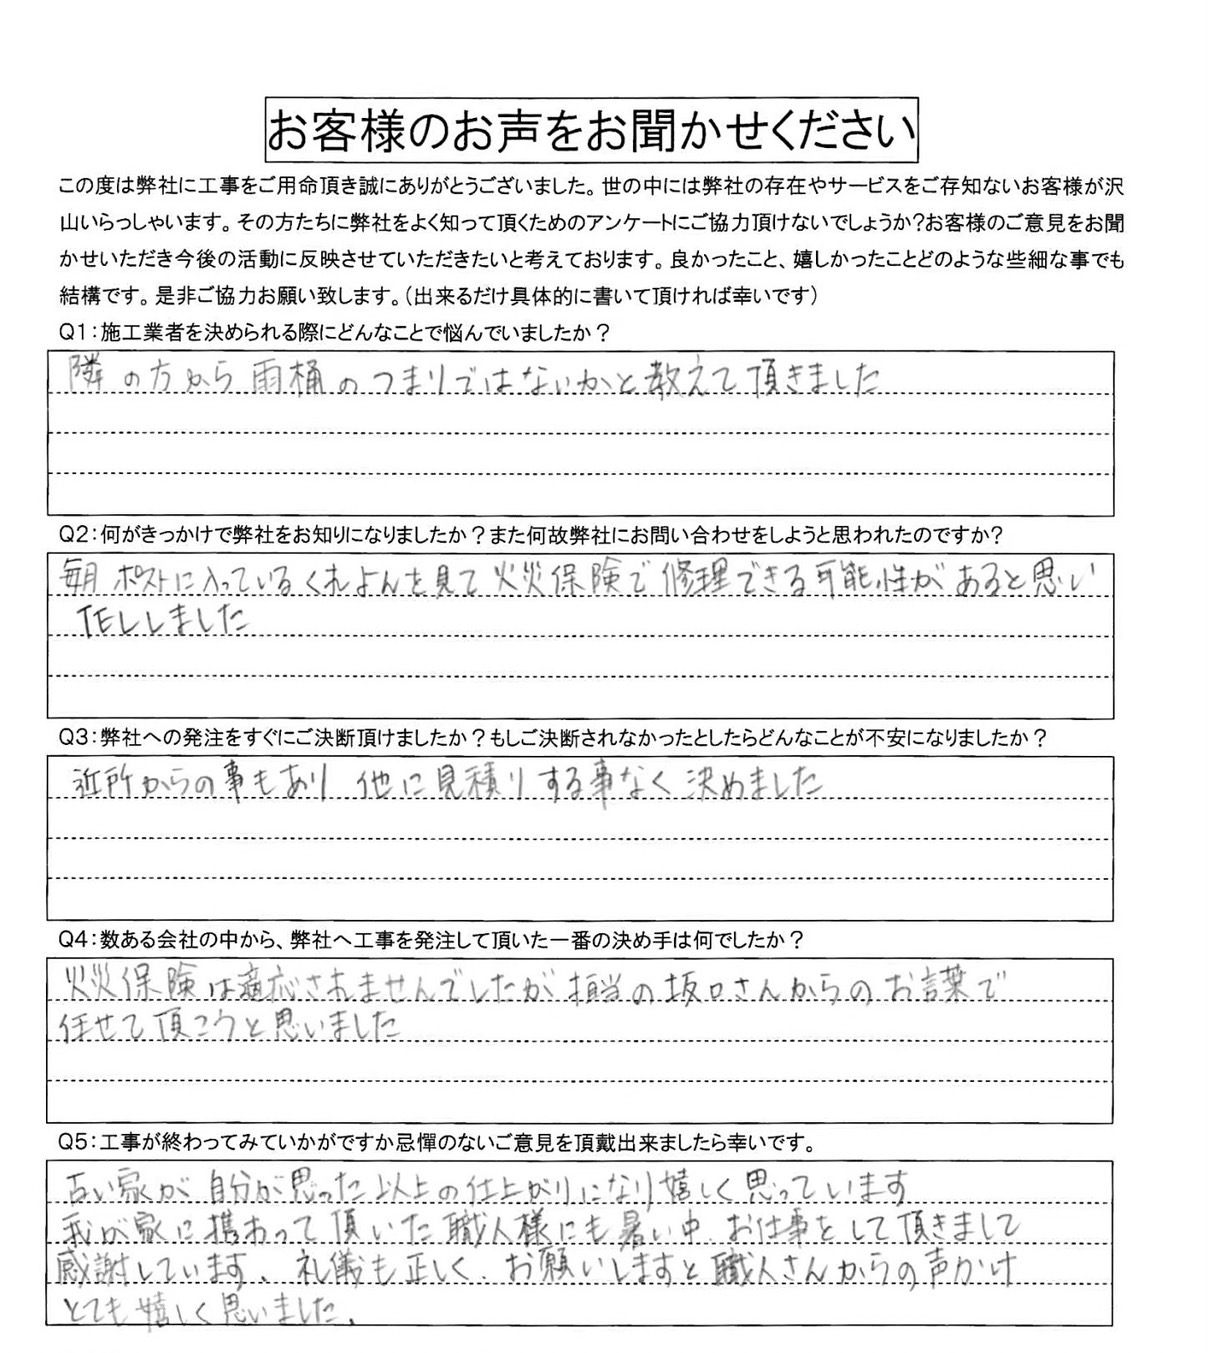 お客様のお声をお聞かせください
この度は弊社に工事をご用命頂き誠にありがとうございました。世の中には弊社の存在やサービスをご存知ないお客様が沢
山いらっしゃいます。その方たちに弊社をよく知って頂くためのアンケートにご協力頂けないでしょうか?お客様のご意見をお聞
かせいただき今後の活動に反映させていただきたいと考えております。良かったこと、嬉しかったことどのような些細な事でも
結構です。是非ご協力お願い致します。(出来るだけ具体的に書いて頂ければ幸いです)
Q1:施工業者を決められる際にどんなことで悩んでいましたか?
隣の方から雨桶のつまりではないかと教えて頂きました
Q2:何がきっかけで弊社をお知りになりましたか?また何故弊社にお問い合わせをしようと思われたのですか?
毎月ポストに入っているくれよんを見て火災保険で修理できる可能性があると思い
TELしました
Q3:弊社への発注をすぐにご決断頂けましたか?もしご決断されなかったとしたらどんなことが不安になりましたか?
近所からの事もあり 他に見積りする事なく決めました
Q4:数ある会社の中から、弊社へ工事を発注して頂いた一番の決め手は何でしたか?
火災保険は適応されませんでしたが担当の坂口さんからのお言葉で
任せて頂こうと思いました
Q5:工事が終わってみていかがですか忌憚のないご意見を頂戴出来ましたら幸いです。
古い家が自分が思った以上の仕上がりになり嬉しく思っています
我が家に携わって頂いた職人様にも暑い中、お仕事をして頂きまして
感謝しています、礼儀も正しく、お願いしますと職人さんからの声かけ
とても嬉しく思いました。